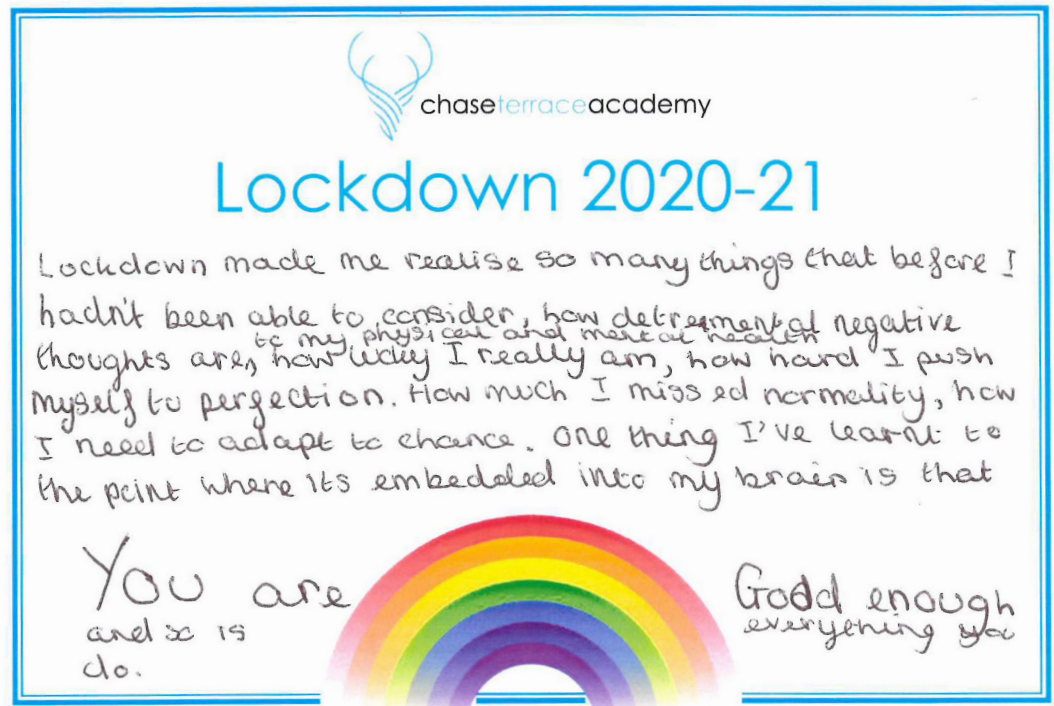 chaseterraceacademy
Lockdown 2020-21
Lockdown made me realise so many things that before I
hadn't been able to consider, how detremental negative
to my physical and mental health
thoughts are, how lucky I really am, how hard I push
myself to perfection. How much I missed normality, how
I need to adapt to chance. One thing I've learnt to
the point where its embedded into my brain is that
You are Godd enough
and so is everything you
do.